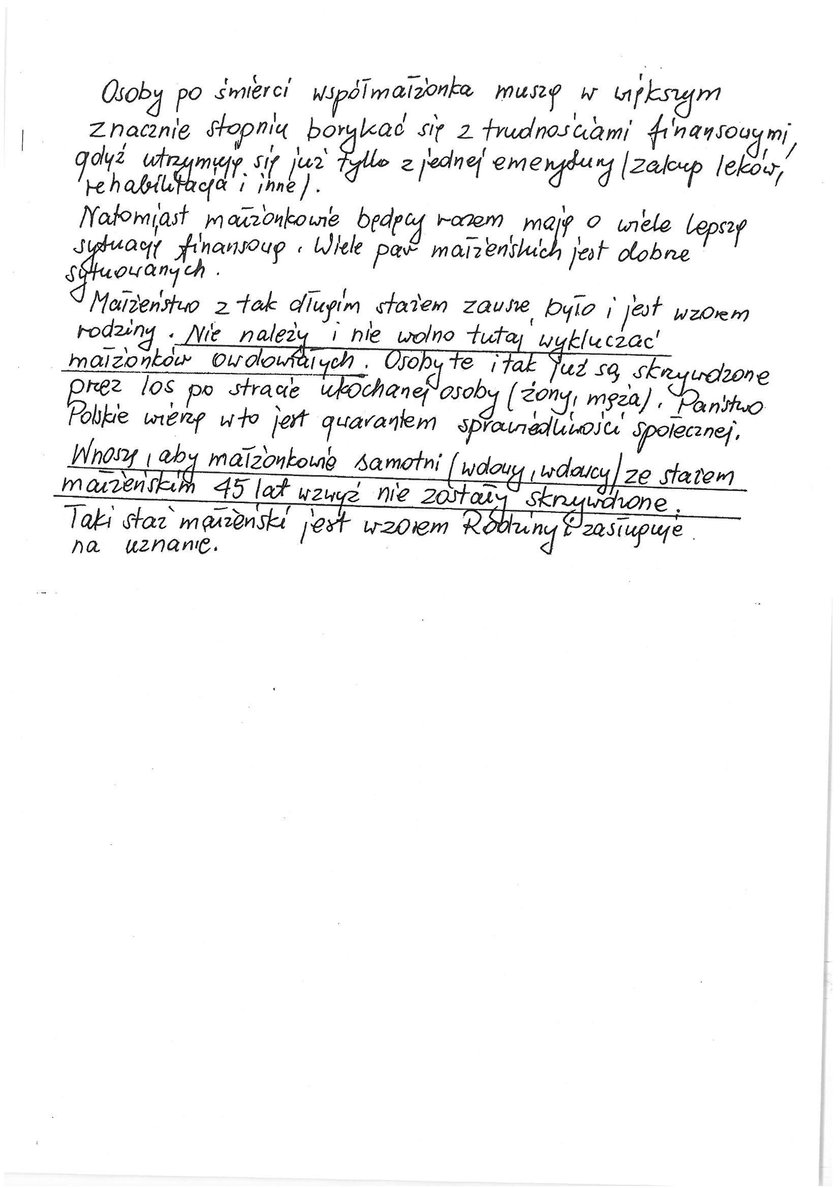 Osoby po śmierci współmałżonka muszę w większym
znacznie stopniu borykać się z trudnościami finansowymi,
gdyż utrzymują się już tylko z jednej emerytury (zakup leków,
rehabilitacja i inne).
Natomiast małżonkowie będący razem mają o wiele lepszą
sytuację finansową. Wiele par małżeńskich jest dobrze
sytuowanych.
Małżeństwo z tak długim stażem zawsze było i jest wzorem
rodziny. Nie należy i nie wolno tutaj wykluczać
małżonków owdowiałych. Osoby te i tak już są skrzywdzone
przez los po stracie ukochanej osoby (żony, męża). Państwo
Polskie wierzę w to jest gwarantem sprawiedliwości społecznej.
Wnoszę, aby małżonkowie samotni (wdowy, wdowcy) ze stażem
małżeńskim 45 lat wzwyż nie zostały skrzywdzone.
Taki staż małżeński jest wzorem Rodziny i zasługuje
na uznanie.